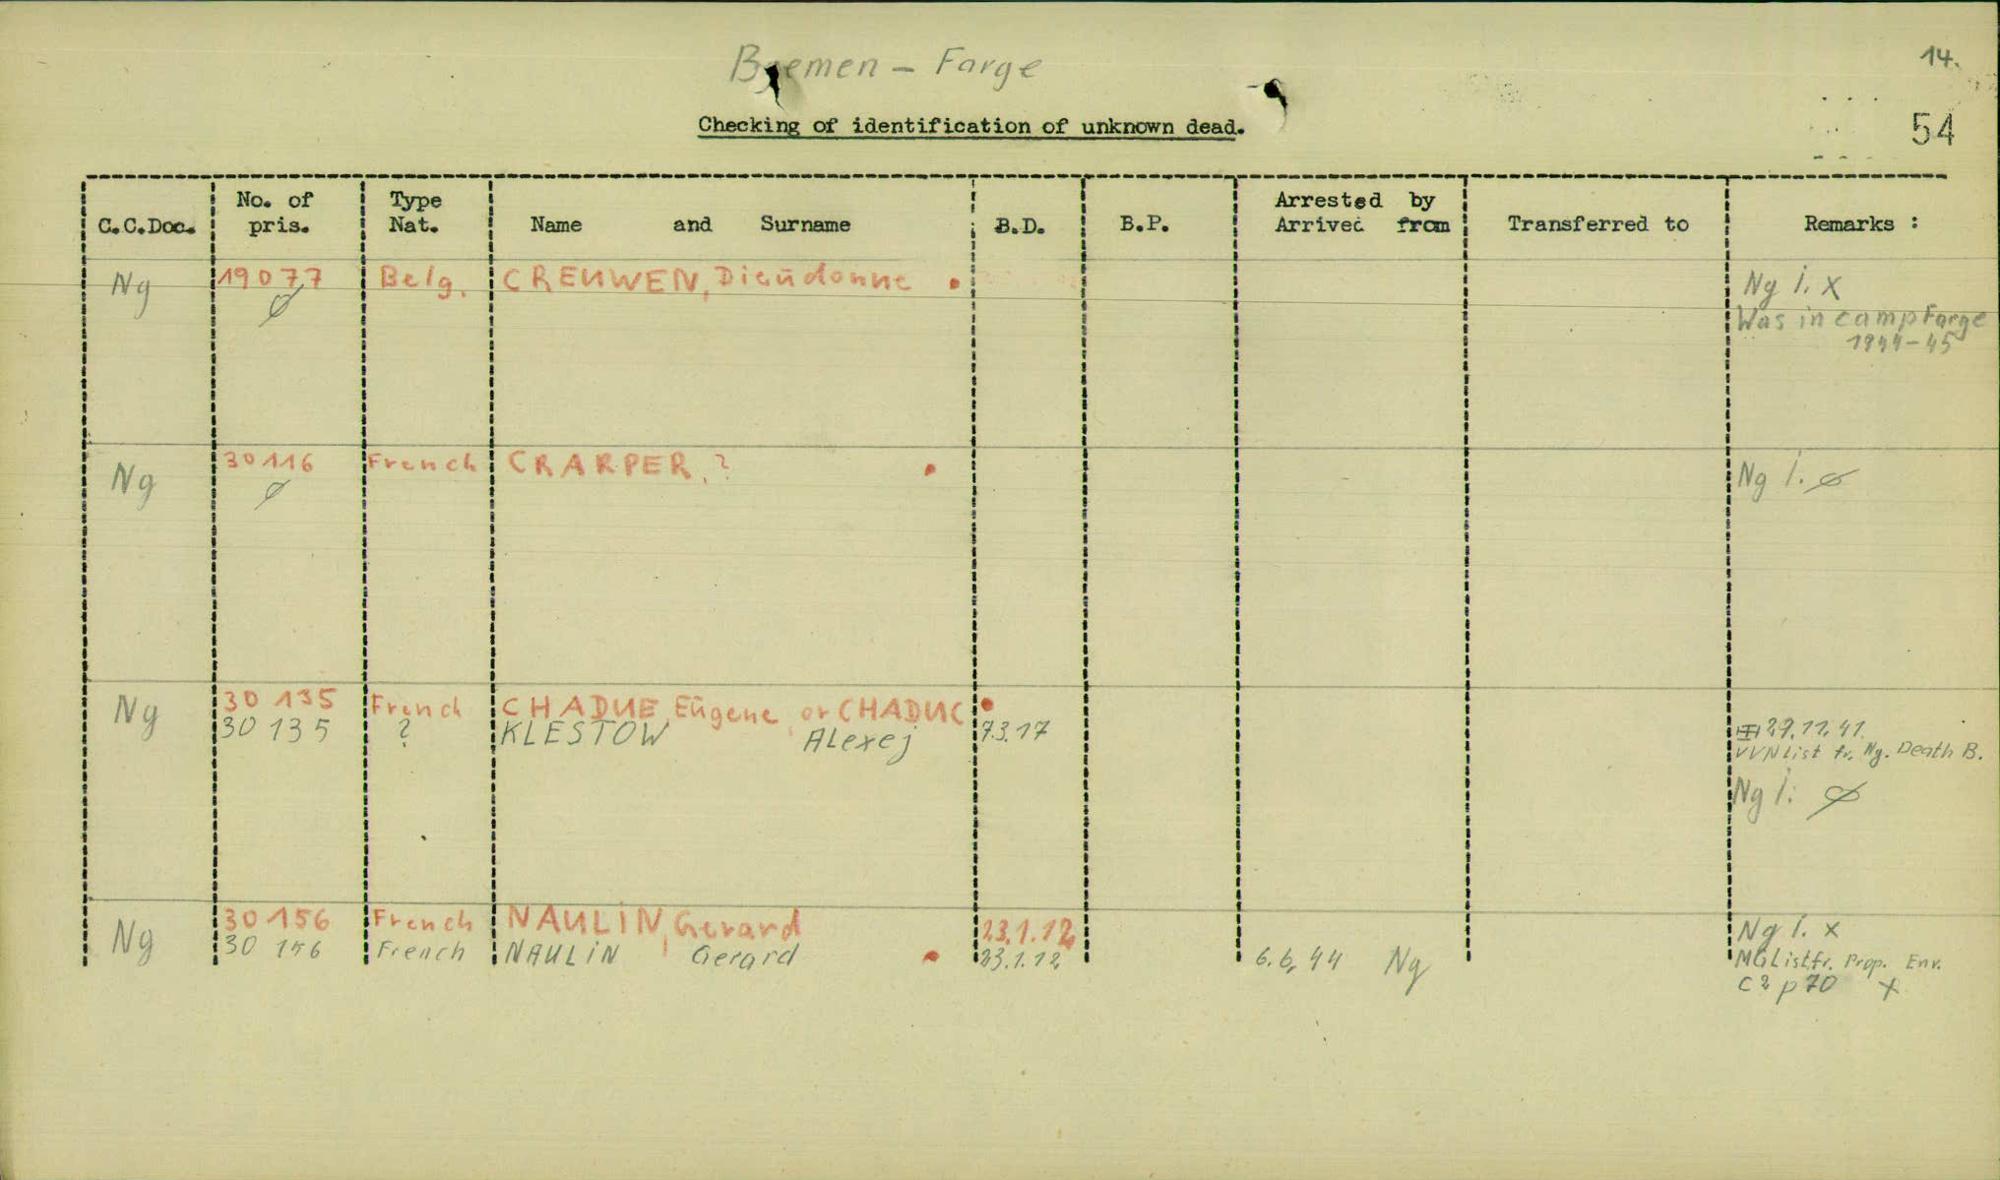 14.
Bremen – Farge
Checking of identification of unknown dead.
54
C.C.Doc. No. of pris. Type Nat. Name and Surname B.D. B.P. Arrested by Arrived from Transferred to Remarks :
Ng 19077 Belg. CREUWEN, Dieudonne Ng i. x
ø Was in camp Farge
1944-45
Ng 30116 French CRARPER, ? Ng i. ø
ø
Ng 30 135 French CHADUE, Eugene or CHADUC
30 135 ? KLESTOW Alexej 7.3.17 29.11.41.
VVN List fr. Ng. Death B.
Ng i: ø
Ng 30 156 French NAULIN, Gerard 23.1.12 Ng i. x
30 156 French NAULIN Gerard 23.1.12 6.6.44 Ng MG List fr. Prop. Env.
C2 p 70 x